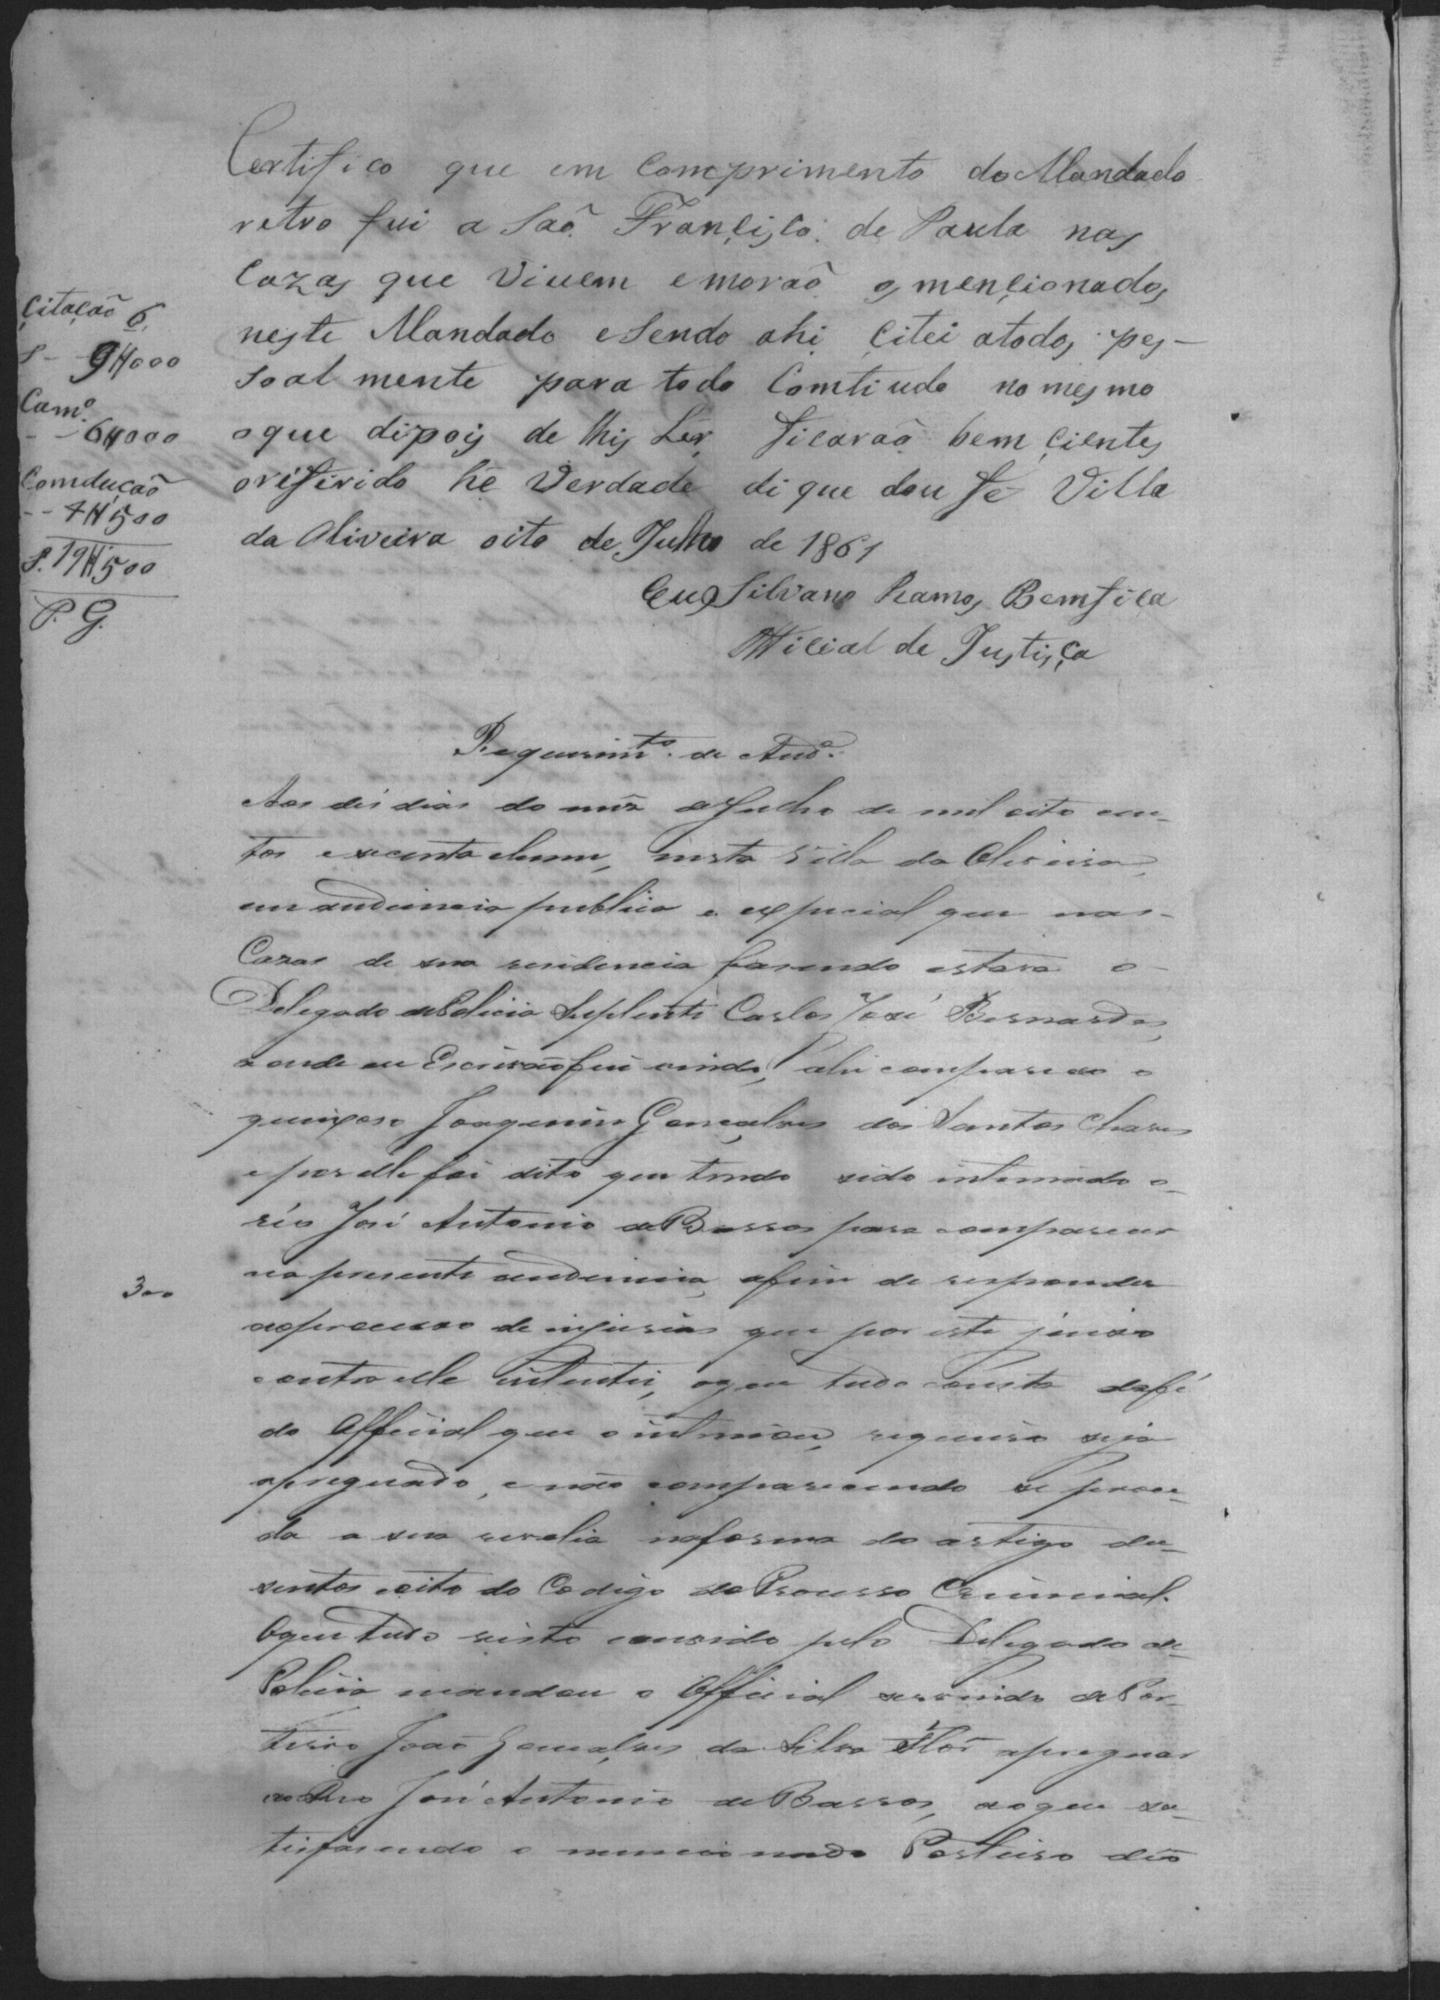 Certifico que em comprimento do Mandado
retro fui a Saõ Françisco de Paula nas
Cazas que Vivem e moraõ os mençionados
neste Mandado e Sendo ahi Çitei atodos pes-
soal mente para todo Comtiudo no mesmo
oque dipois de lhis Ler, ficaraõ bem çientes
oriferido he Verdade di que dou fé Villa
da Oliveira oito de Julho de 1861
Eu Silvano Ramos Bemfica
Official de Justiça
Çitaçaõ 6
S - 9#000
Cam.º
- - 6#000
Comduçaõ
- - 4#500
S. 19#500
P. G.
Requerim.to de Aud.ª
Aos déz dias do mêz de Julho de mil oito cen-
tos e secenta ehum, nesta Villa da Oliveira,
em audiencia publica e especial que nas
Cazas de sua residencia fasendo estava o
Delegado de Policia Suplente Carlos José Bernardes,
aonde eu Escrivaõ fui vindo, ahi compareceo o
queixoso Joaquim Gonçalves dos Santos Chaves
e por elle foi dito que tendo sido intimado o
réo José Antonio de Barros para comparecer
na presente audiencia, afim de responder
ao processo de injurias que por este juizo
contra elle intentei, oque tudo consta dafé
do Official que o intimou, requeiro seja
apregoado, e não comparecendo se proce-
da a sua revelia naforma do artigo du-
sentos eoito do Codigo do Processo Criminal.
Oque tudo visto eouvido pelo Delegado de
Policia mandou o Official servindo de Por-
teiro João Gonçalves da Silva Flor apregoar
ao Reo José Antonio de Barros, aoque sa-
tisfasendo o mencionado Porteiro deo
300